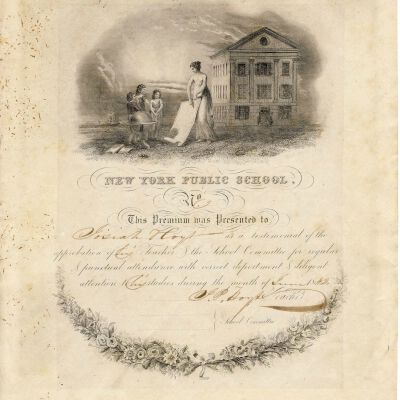 NEW YORK PUBLIC SCHOOL.
No
This Premium was Presented to
Hoyt as a testimonial of the
approbation of his Teacher & the School Committee for regular
& punctual attendance with correct deportment & diligent
attention to his studies during the month of
Hoyt Teacher
School Committee